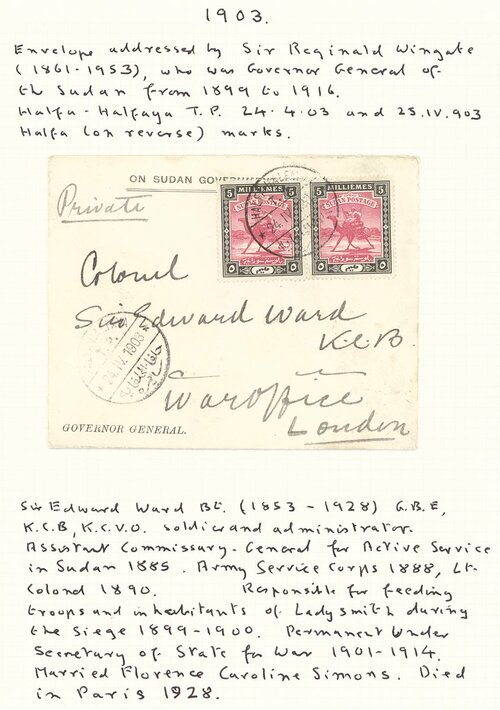 1903.
Envelope addressed by Sir Reginald Wingate
(1861-1953), who was Governor General of
the Sudan from 1899 to 1916.
Halfa-Halfaya T.P. 24.4.03 and 25.IV.903
Halfa (on reverse) marks.
ON SUDAN GOVERNMENT
Private
5 MILLIEMES 5
SUDAN POSTAGE
5 MILLIEMES 5
SUDAN POSTAGE
Colonel
Sir Edward Ward
K.C.B.
T.P.
24.IV.1903
War Office
London
GOVERNOR GENERAL.
Sir Edward Ward Bt. (1853 - 1928) G.B.E,
K.C.B, K.C.V.O. soldier and administrator.
Assistant Commissary-General for Active Service
in Sudan 1885. Army Service Corps 1888, Lt-
Colonel 1890. Responsible for feeding
troops and inhabitants of Ladysmith during
the Siege 1899-1900. Permanent Under
Secretary of State for War 1901-1914.
Married Florence Caroline Simons. Died
in Paris 1928.